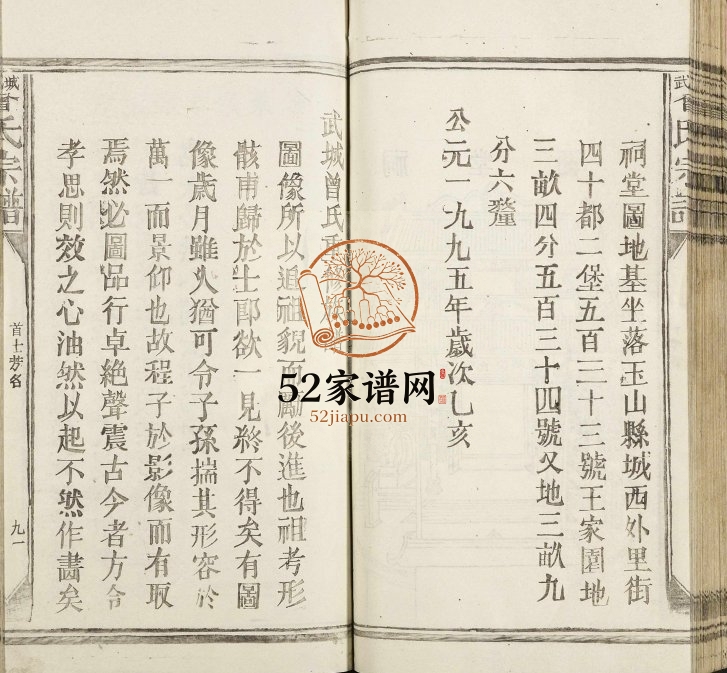 武城曾氏宗譜
祠堂圖地基坐落玉山縣城西外里街
四十都二堡五百三十三號王家園地
三畝四分五百三十四號又地三畝九
分六釐
公元一九九五年歲次乙亥
武城曾氏重
圖像所以追祖貌而勵後進也祖考形
骸甫歸於土耶欲一見終不得矣有圖
像歲月雖久猶可令子孫揣其形容於
萬一而景仰也故程子於影像而有取
焉然必圖品行卓絶聲震古今者方令
孝思則效之心油然以起不然作畵矣
城曾氏宗譜
首士芳名
九一
52家谱网
52jiapu.com